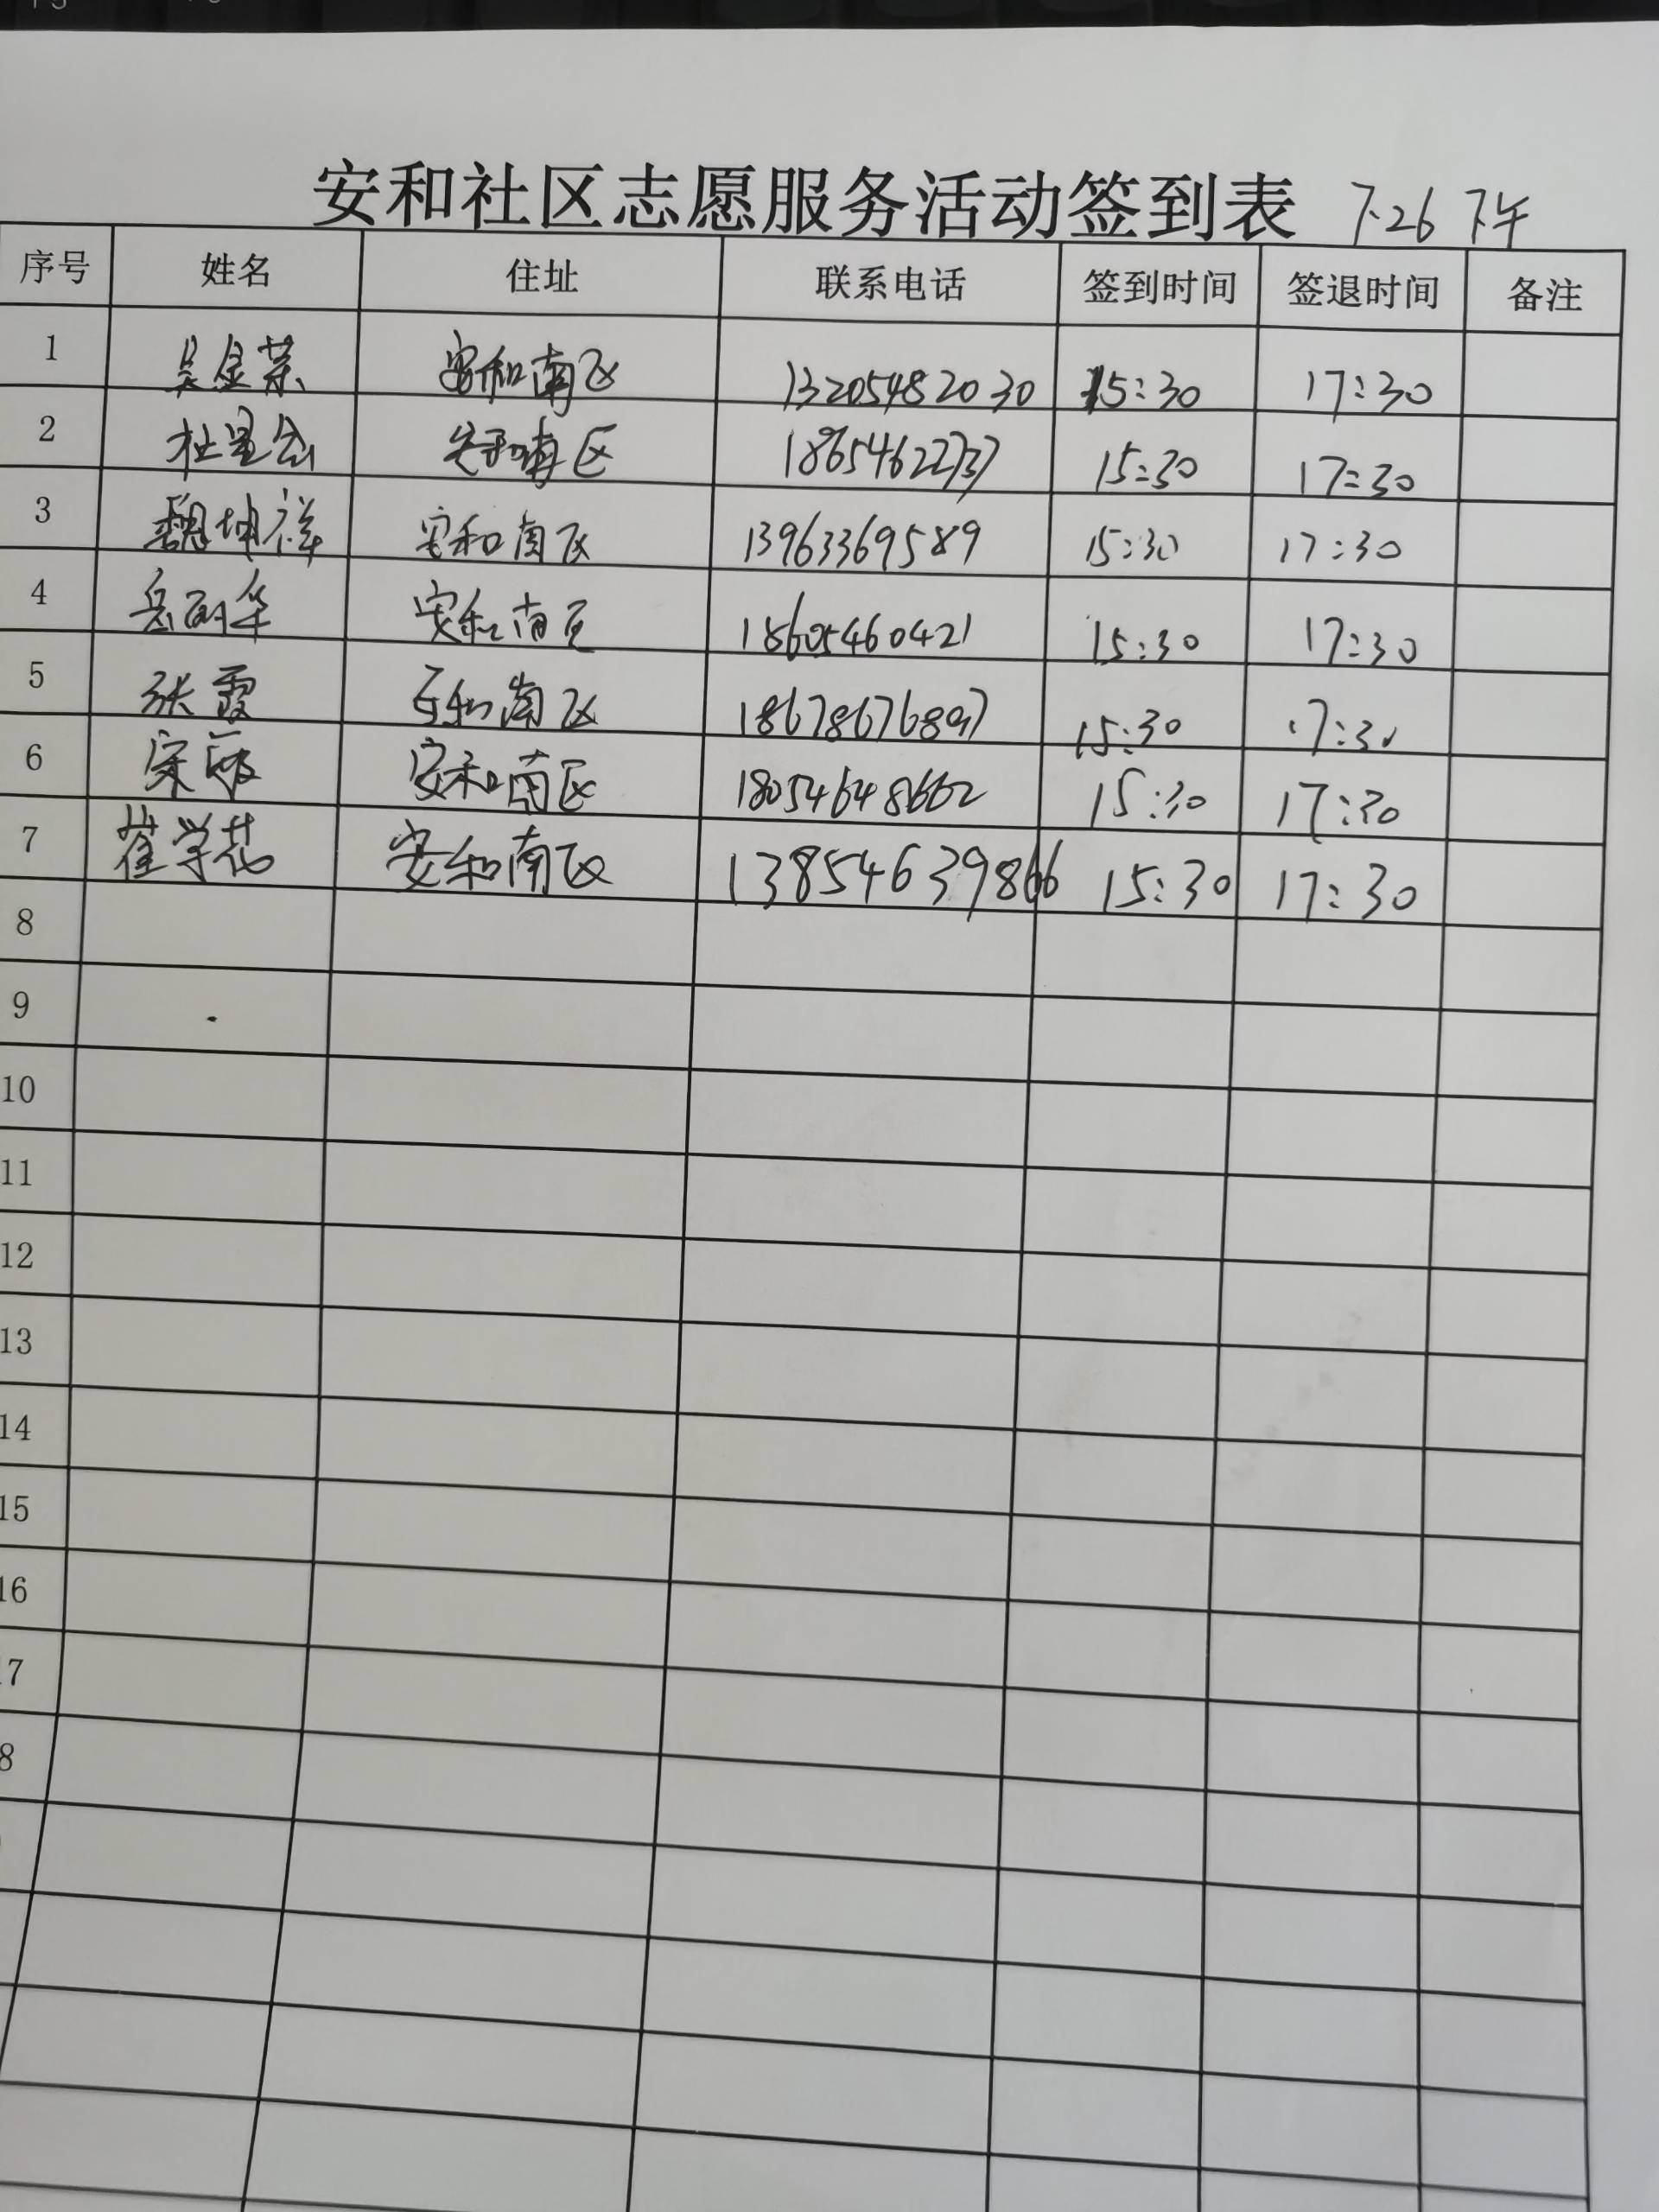 安和社区志愿服务活动签到表 7.26 下午
序号 姓名 住址 联系电话 签到时间 签退时间 备注
1 吴金荣 安和南区 13205482030 15:30 17:30
2 杜 安和南区 18654622737 15:30 17:30
3 魏坤祥 安和南区 13963369589 15:30 17:30
4 岳丽华 安和南区 18605460421 15:30 17:30
5 张霞 安和南区 18678676897 15:30 17:30
6 宋 安和南区 18054648662 15:30 17:30
7 崔学花 安和南区 13854639866 15:30 17:30
8
9
10
11
12
13
14
15
16
17
8